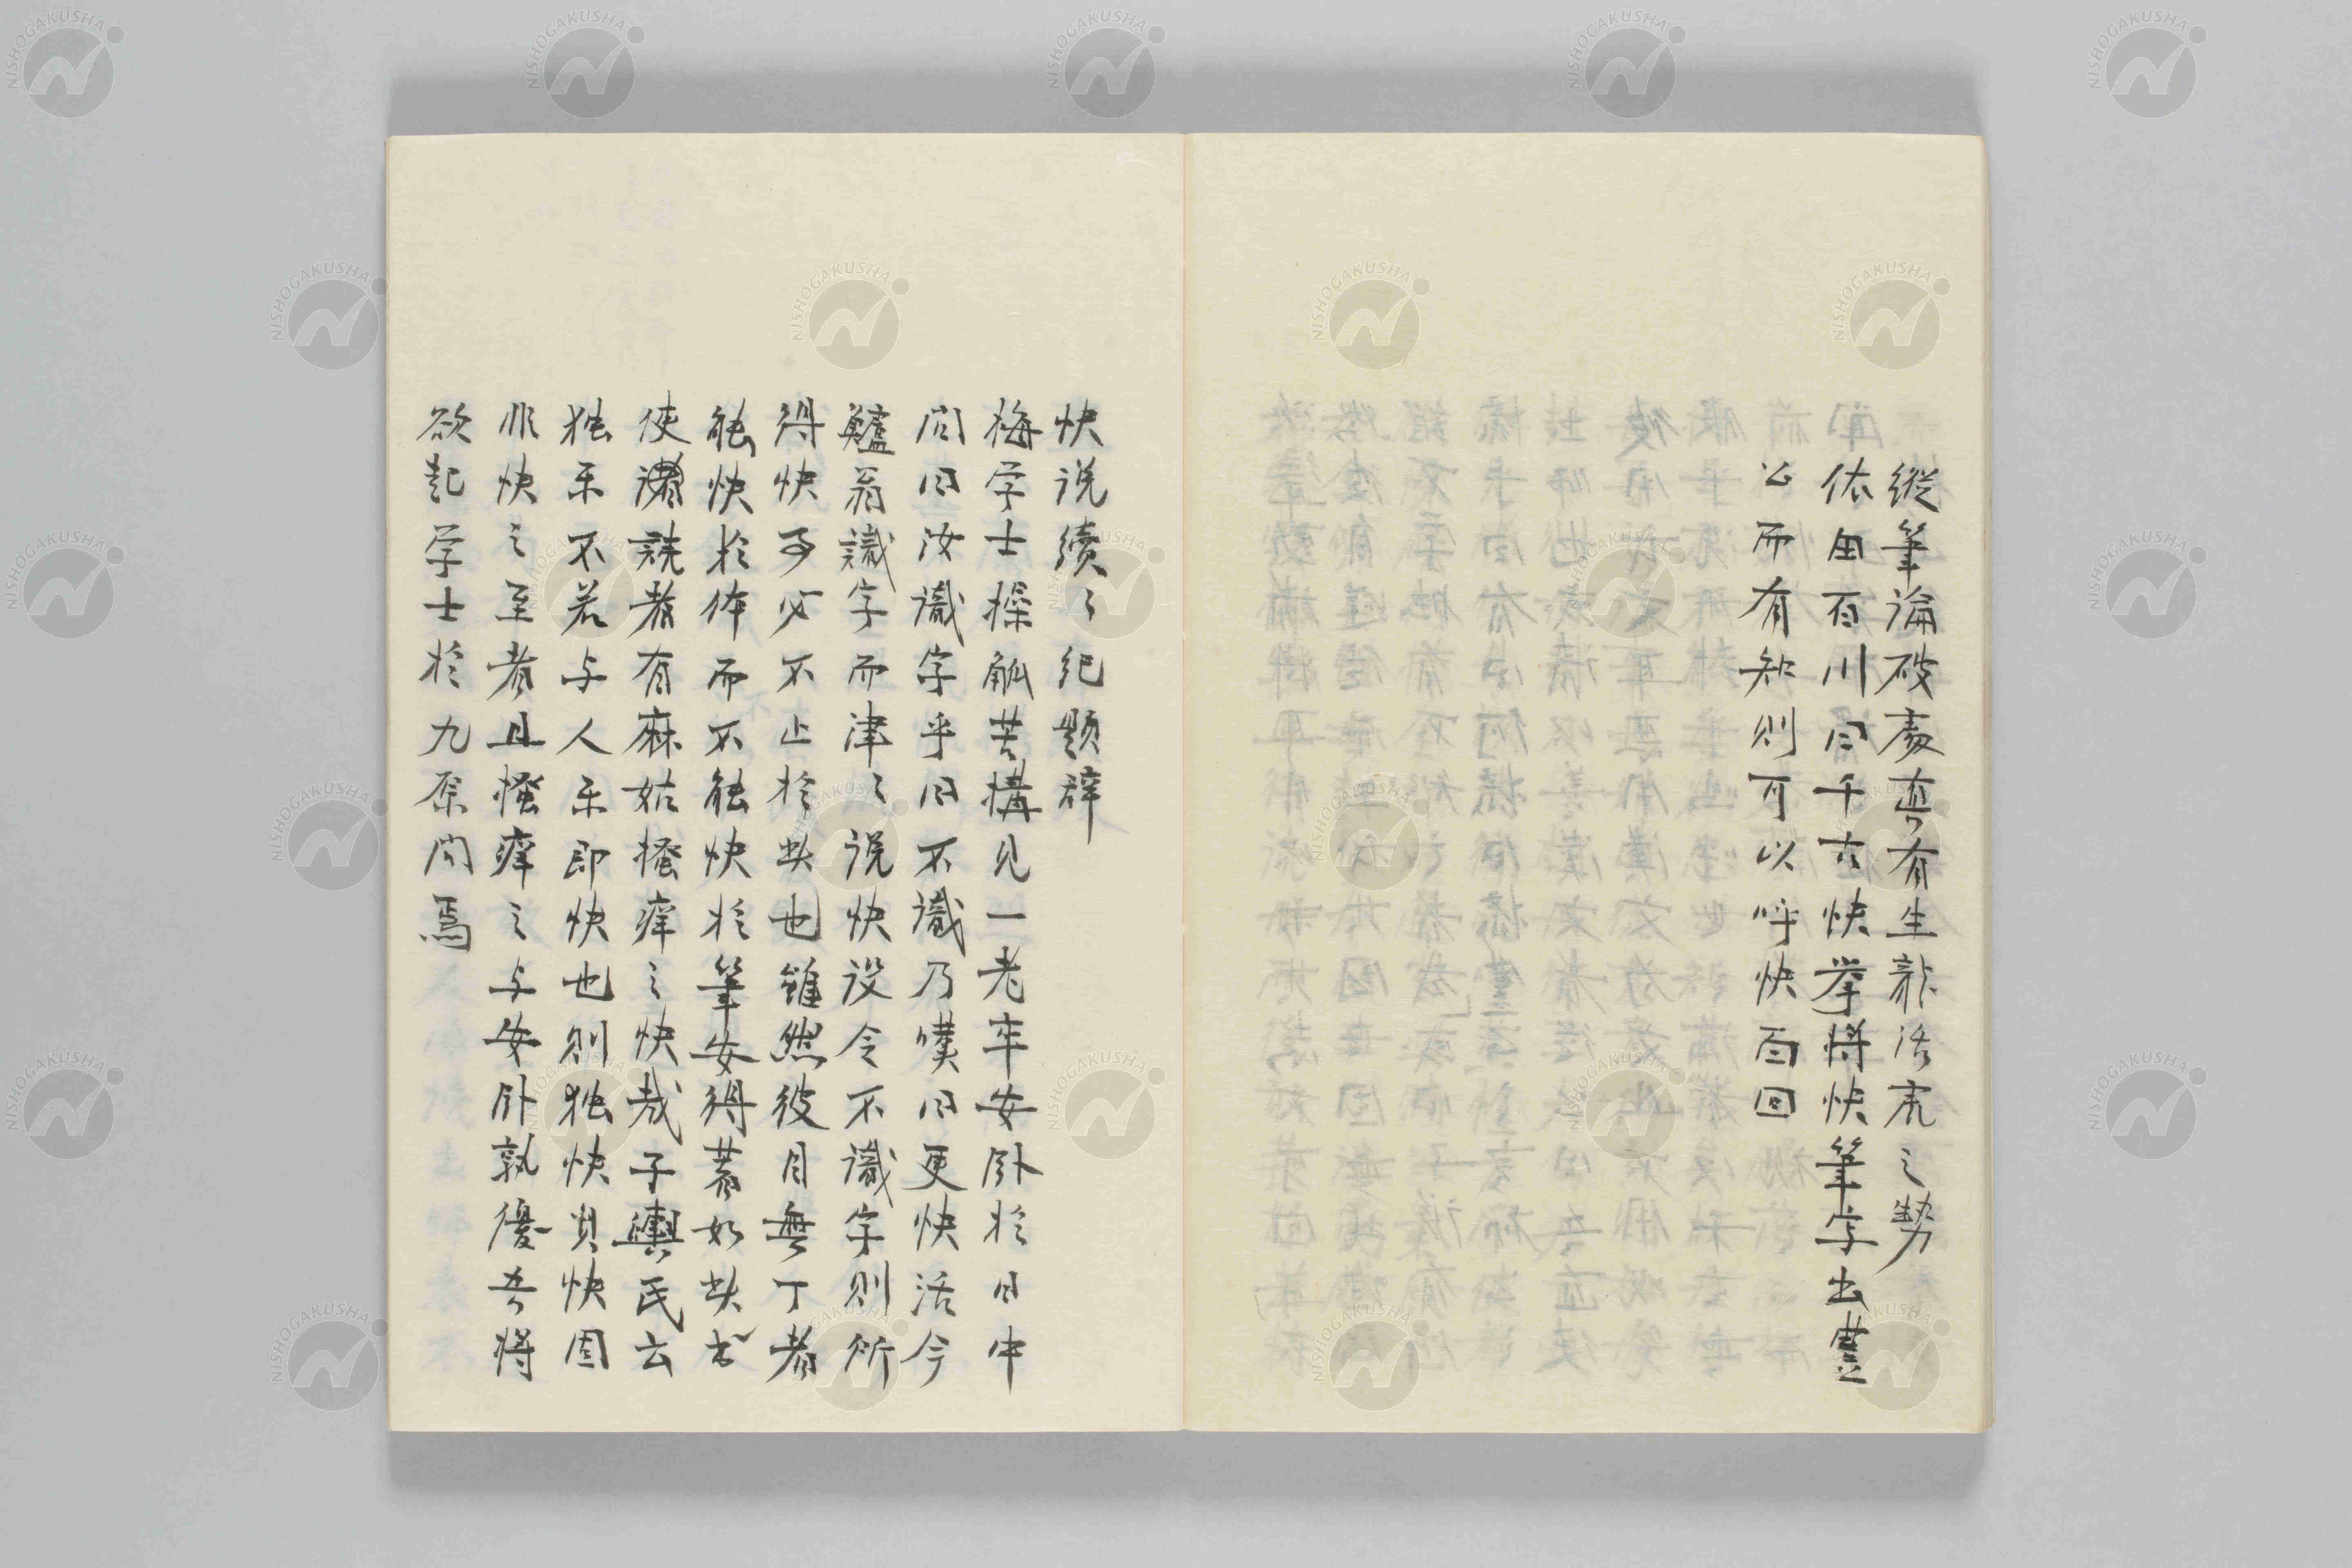 縦筆論破處直有生龍活虎之勢
依田百川曰千古快挙将快筆字出豊
公而有知則可以呼快百回
快説續々紀題辞
梅学士操觚苦構見一老卒安臥於日中
問曰汝識字乎曰不識乃嘆曰更快活今
鱸翁識字而津々説快設令不識字則所
得快可必不止於此也雖然彼目無丁者
能快於体而不能快於筆安得著如此书
使讀者有麻姑搔痒之快哉子輿氏云
独乐不若与人乐即快也則独快貝快固
非快之至者且搔痒之与安臥孰優吾将
欲起学士於九原問焉
NISHOGAKUSHA